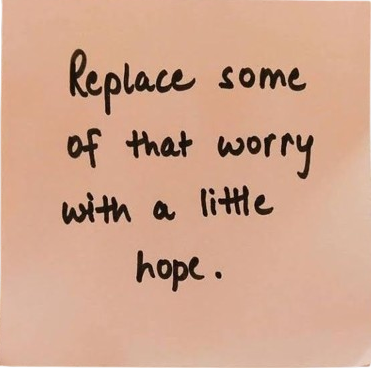 Replace some
of that worry
with a little
hope.